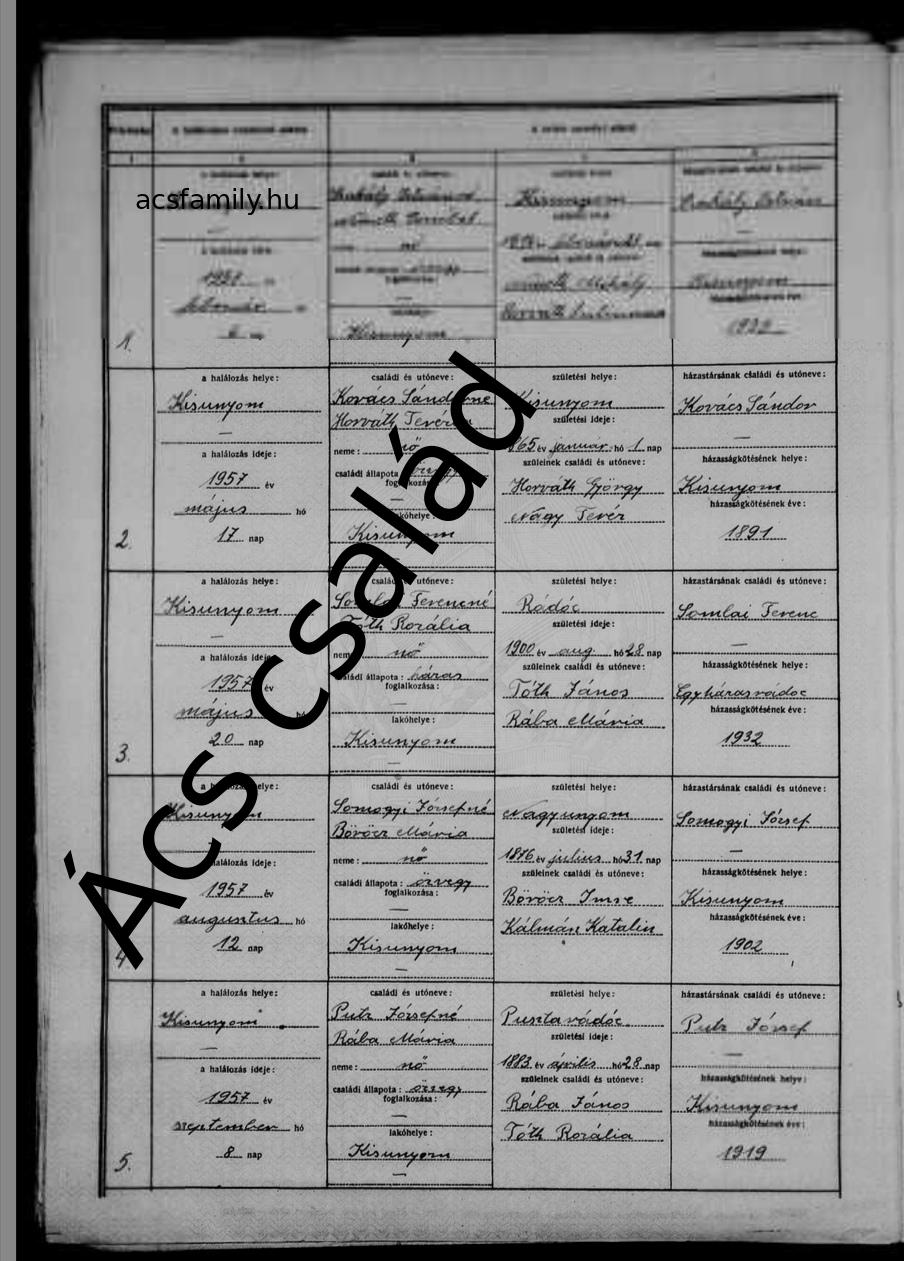 acsfamily.hu
Ács család
1957
február
6 nap
Kisunyom
Németh Mihály
1.
a halálozás helye:
Kisunyom
—
a halálozás ideje:
1957 év
május hó
17 nap
2.
családi és utóneve:
Kovács Sándorné
Horváth Teréz
neme: nő
családi állapota: özvegy
foglalkozása:
—
lakóhelye:
Kisunyom
születési helye:
Kisunyom
születési ideje:
1865 év január hó 1 nap
szüleinek családi és utóneve:
Horváth György
Nagy Teréz
házastársának családi és utóneve:
Kovács Sándor
—
házasságkötésének helye:
Kisunyom
házasságkötésének éve:
1891
a halálozás helye:
Kisunyom
—
a halálozás ideje:
1957 év
május hó
20 nap
3.
családi és utóneve:
Somlai Ferencné
Tóth Rozália
neme: nő
családi állapota: házas
foglalkozása:
—
lakóhelye:
Kisunyom
—
születési helye:
Rádóc
születési ideje:
1900 év aug. hó 28 nap
szüleinek családi és utóneve:
Tóth János
Rába Mária
házastársának családi és utóneve:
Somlai Ferenc
—
házasságkötésének helye:
Egyházasrádóc
házasságkötésének éve:
1932
a halálozás helye:
Kisunyom
a halálozás ideje:
1957 év
augusztus hó
12 nap
4.
családi és utóneve:
Somogyi Józsefné
Böröcz Mária
neme: nő
családi állapota: özvegy
foglalkozása:
—
lakóhelye:
Kisunyom
—
születési helye:
Nagyunyom
születési ideje:
1876 év julius hó 31 nap
szüleinek családi és utóneve:
Böröcz Imre
Kálmán Katalin
házastársának családi és utóneve:
Somogyi József
—
házasságkötésének helye:
Kisunyom
házasságkötésének éve:
1902
a halálozás helye:
Kisunyom
—
a halálozás ideje:
1957 év
szeptember hó
8 nap
5.
családi és utóneve:
Putz Józsefné
Rába Mária
neme: nő
családi állapota: özvegy
foglalkozása:
—
lakóhelye:
Kisunyom
—
születési helye:
Pusztarádóc
születési ideje:
1883 év április hó 28 nap
szüleinek családi és utóneve:
Rába János
Tóth Rozália
házastársának családi és utóneve:
Putz József
—
házasságkötésének helye:
Kisunyom
házasságkötésének éve:
1919